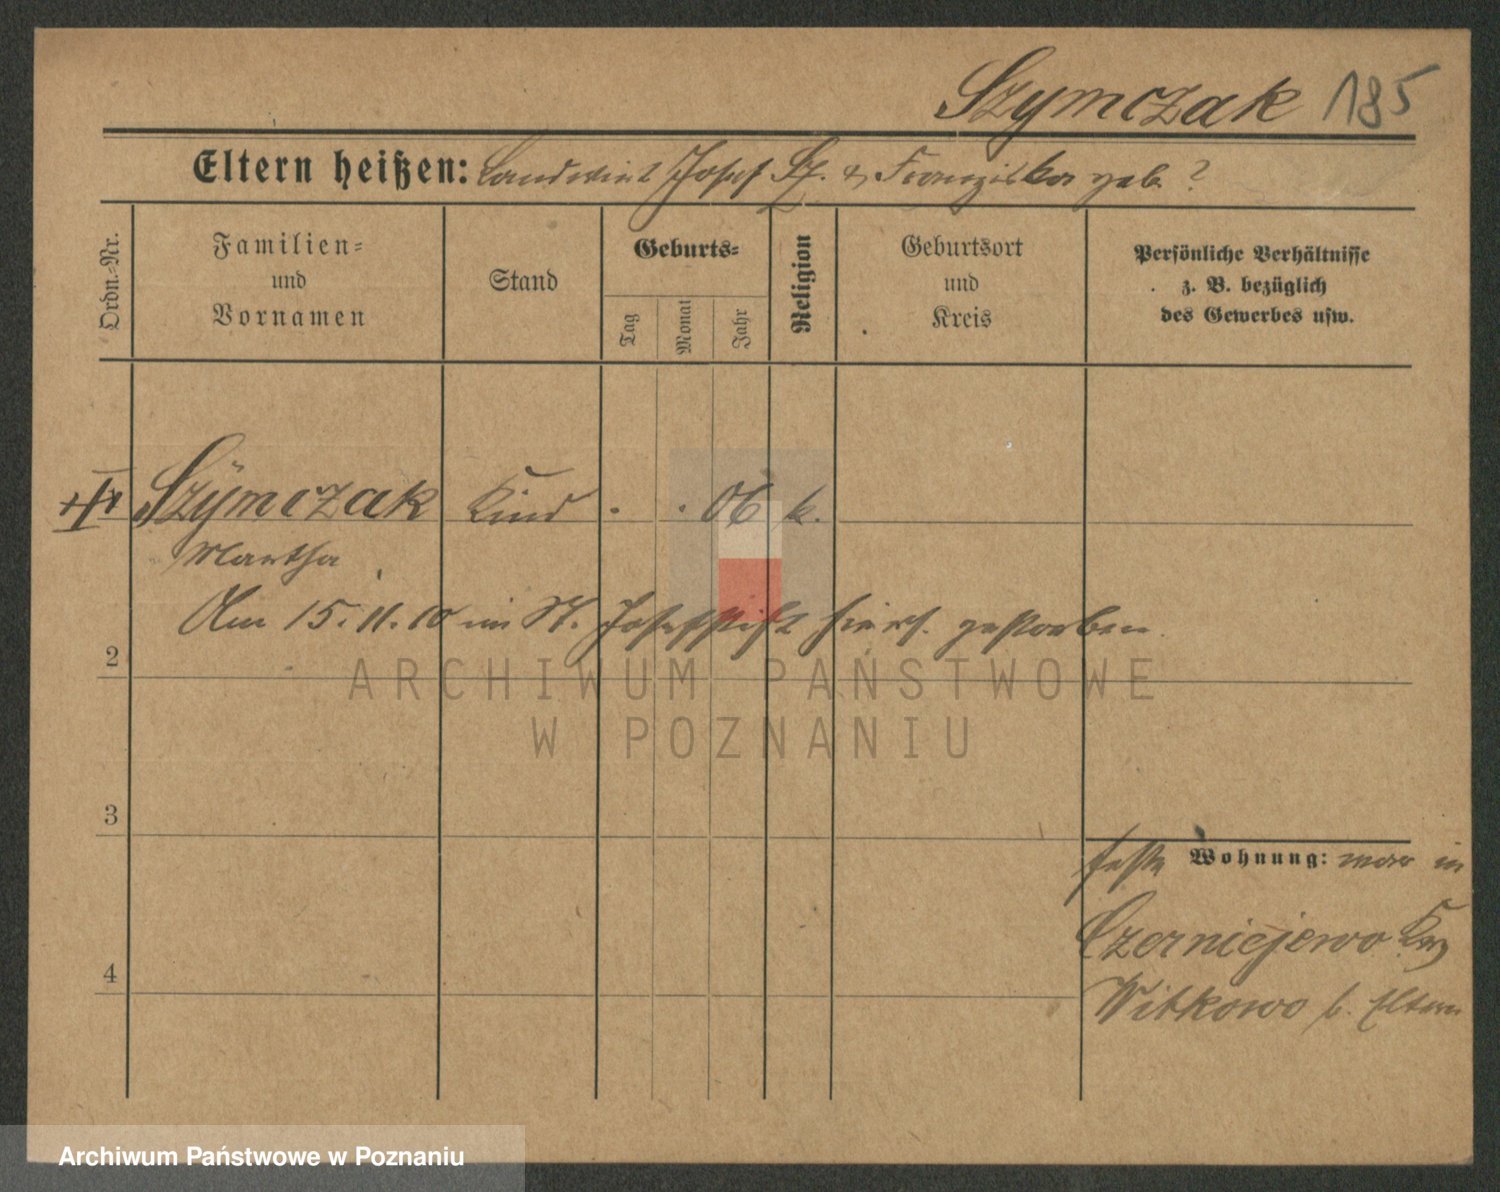 Szymczak 185
Eltern heißen: Landwirt Josef Sz. & Franziska geb. ?
Ordn.-Nr.
Familien-
und
Vornamen
Stand
Geburts-
Tag
Monat
Jahr
Religion
Geburtsort
und
Kreis
Persönliche Verhältnisse
z. B. bezüglich
des Gewerbes usw.
Szymczak Kind . . 06 k.
Martha
Am 15.11.10 im St. Josefsstift hiers. gestorben.
2
ARCHIWUM PAŃSTWOWE
W POZNANIU
3
feste Wohnung: war in
Czerniejewo
4
Witkowo b. Eltern
Archiwum Państwowe w Poznaniu